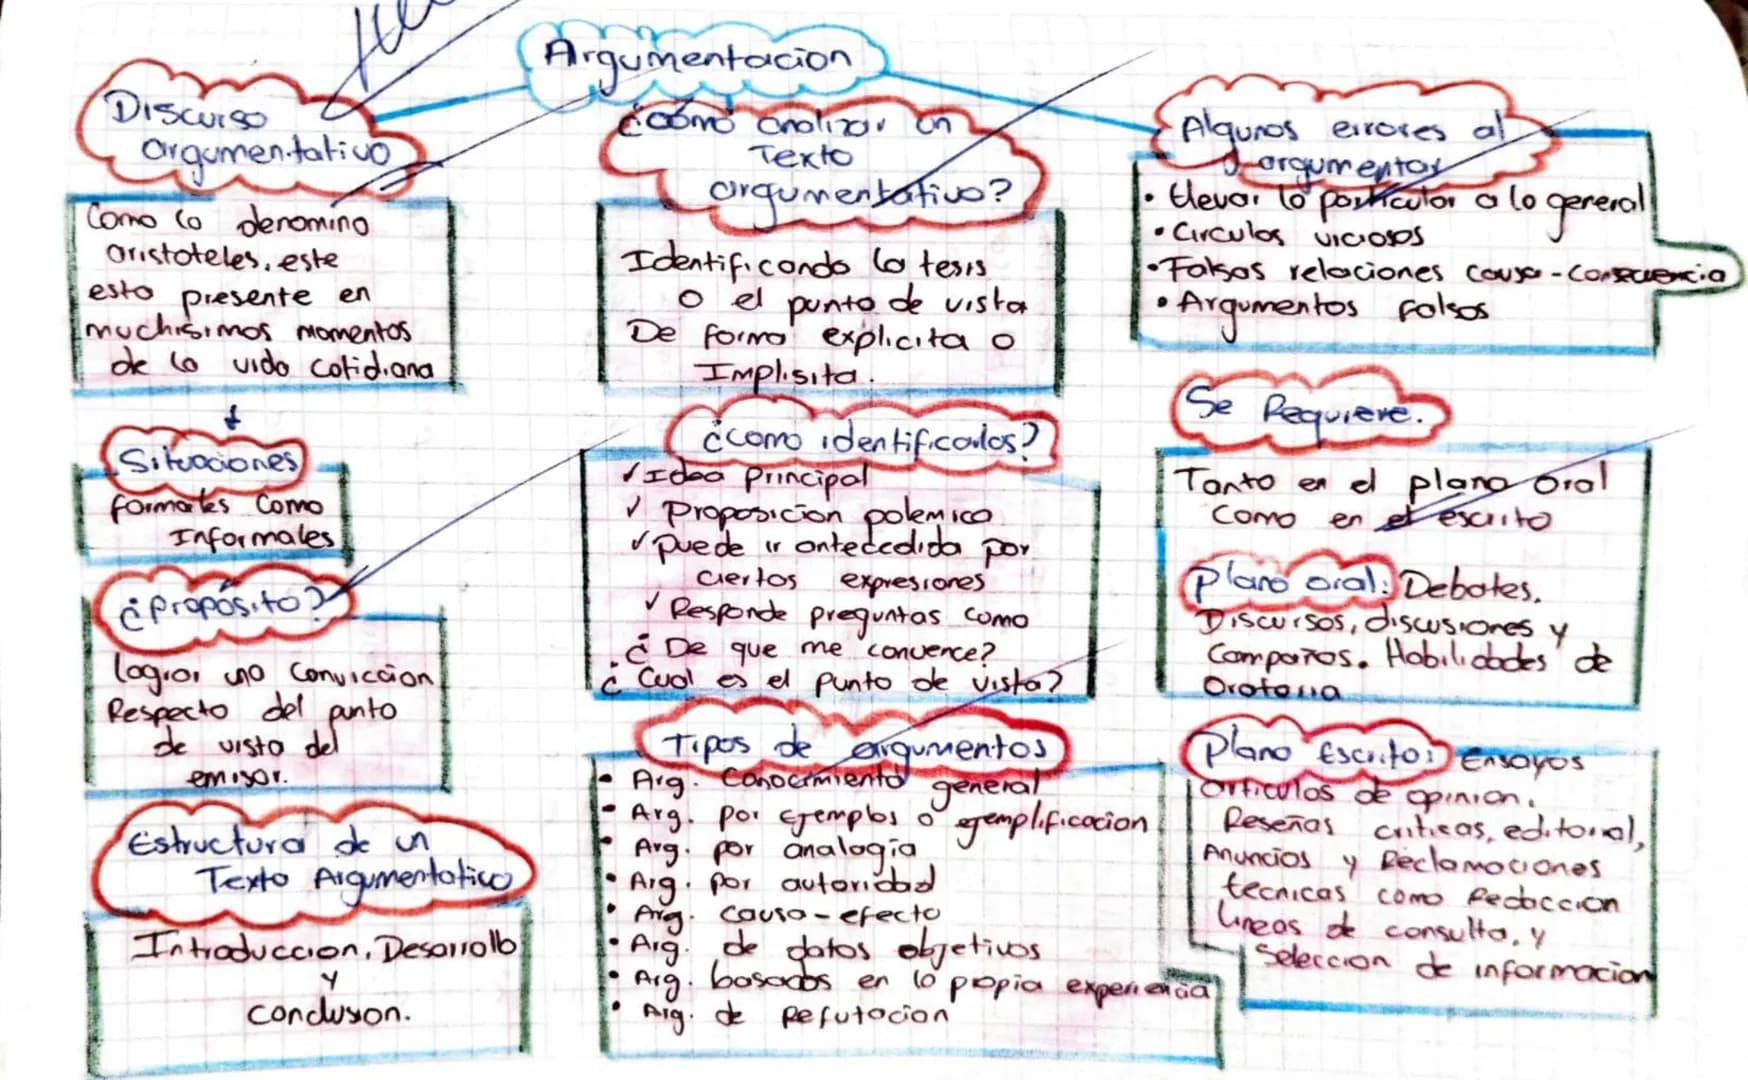 Argumentacion
Discurso
argumentativo
Como lo denomino
aristoteles, este
esta presente en
muchisimos momentos
de la vida cotidiana
Situaciones
formales como
Informales
¿Propósito?
lograr una convicción
Respecto del punto
de vista del
emisor.
Estructura de un
Texto Argumentativo
Introduccion, Desarrollo
y
conclusion.
¿cómo analizar un
Texto
argumentativo?
Identificando la tesis
o el punto de vista
De forma explicita o
Implisita.
¿como identificarlos?
✓ Idea Principal
✓ Proposicion polemica
✓ puede ir antecedida por
ciertos expresiones
✓ Responde preguntas como
¿De que me convence?
¿Cual es el punto de vista?
Tipos de argumentos
• Arg. Conocimiento general
• Arg. por ejemplos o ejemplificacion
• Arg. por analogia
• Arg. por autoridad
• Arg. causa-efecto
• Arg. de datos objetivos
• Arg. basados en la propia experiencia
• Arg. de Refutacion
Algunos errores al
argumentar
• Elevar lo particular a lo general
• Circulos viciosos
• Falsas relaciones causa-consecuencia
• Argumentos falsos
Se Requiere.
Tanto en el plano oral
Como en el escrito
plano oral: Debates,
Discursos, discusiones y
Campañas. Habilidades de
Oratoria
plano Escrito: Ensayos
articulos de opinion,
Reseñas criticas, editorial,
Anuncios y Reclamaciones
tecnicas como Redaccion
lineas de consulta, y
Seleccion de informacion